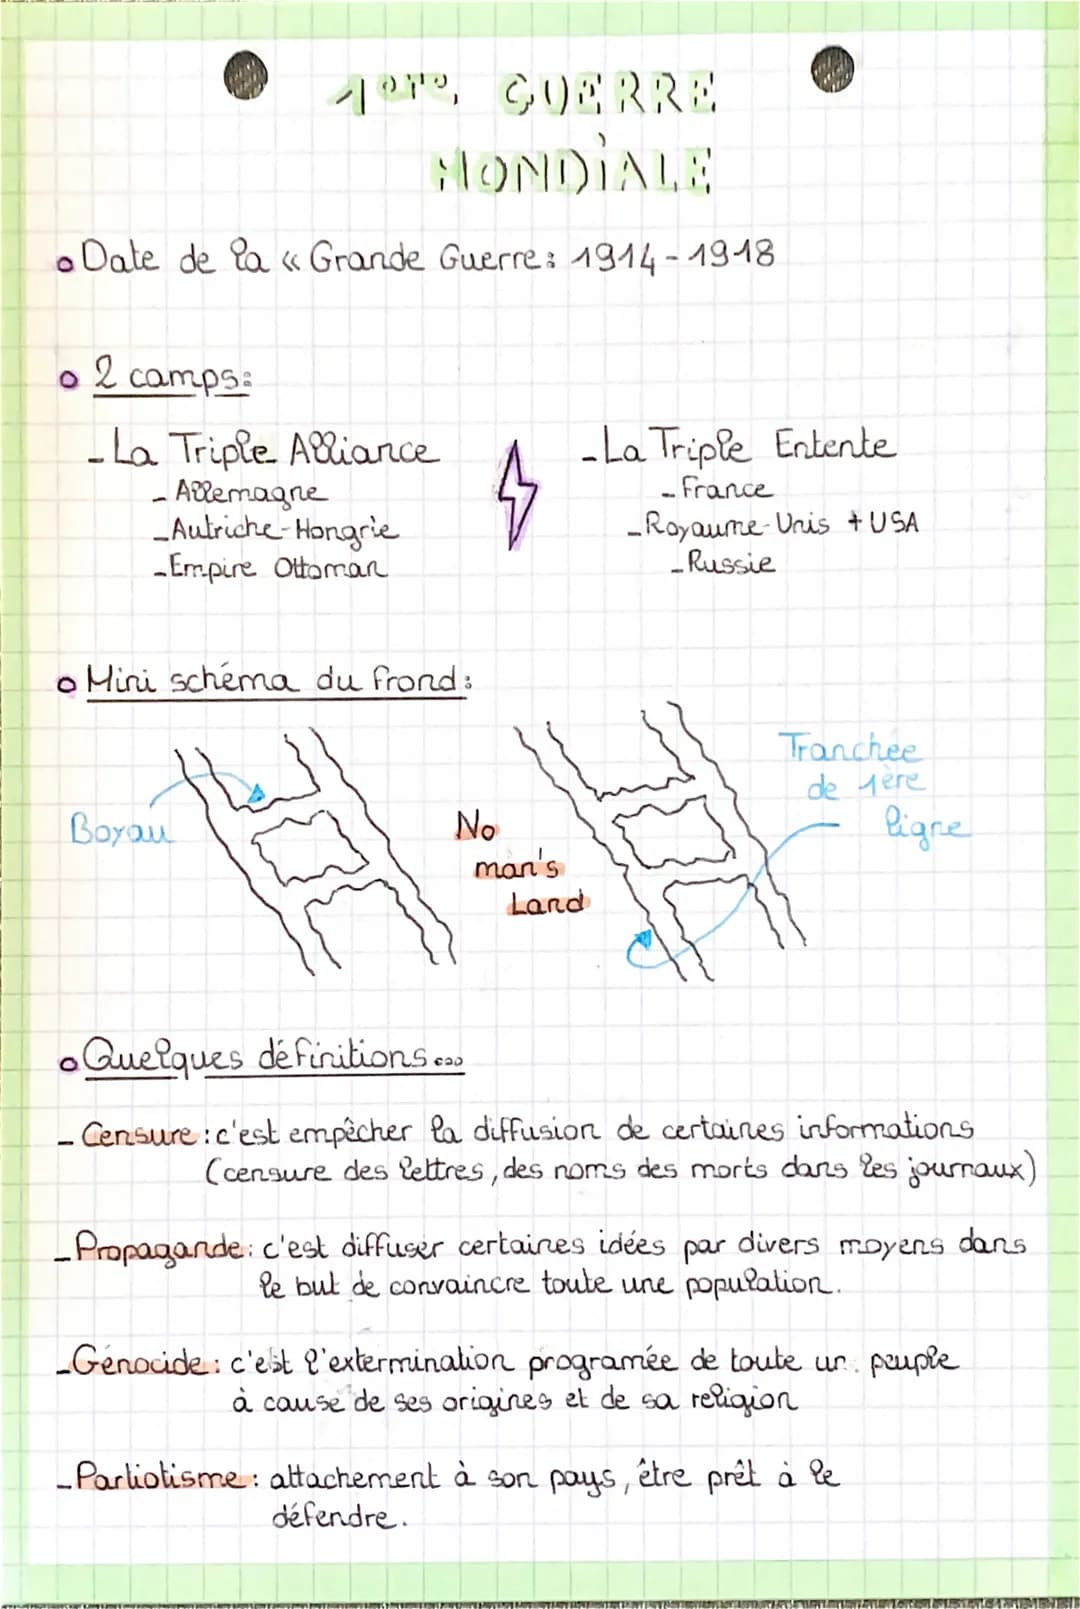 1ère GUERRE
MONDIALE
Date de la « Grande Guerre : 1914-1918
2 camps :
- La Triple Alliance
- Allemagne
- Autriche-Hongrie
- Empire Ottoman
- La Triple Entente
- France
- Royaume-Unis + USA
- Russie
Mini schéma du frond :
Boyau
No
man's
Land
Tranchée
de 1ère
ligne
Quelques définitions...
- Censure : c'est empêcher la diffusion de certaines informations
(censure des lettres, des noms des morts dans les journaux)
- Propagande : c'est diffuser certaines idées par divers moyens dans
le but de convaincre toute une population.
- Génocide : c'est l'extermination programée de toute un peuple
à cause de ses origines et de sa religion
- Partiotisme : attachement à son pays, être prêt à le
défendre.